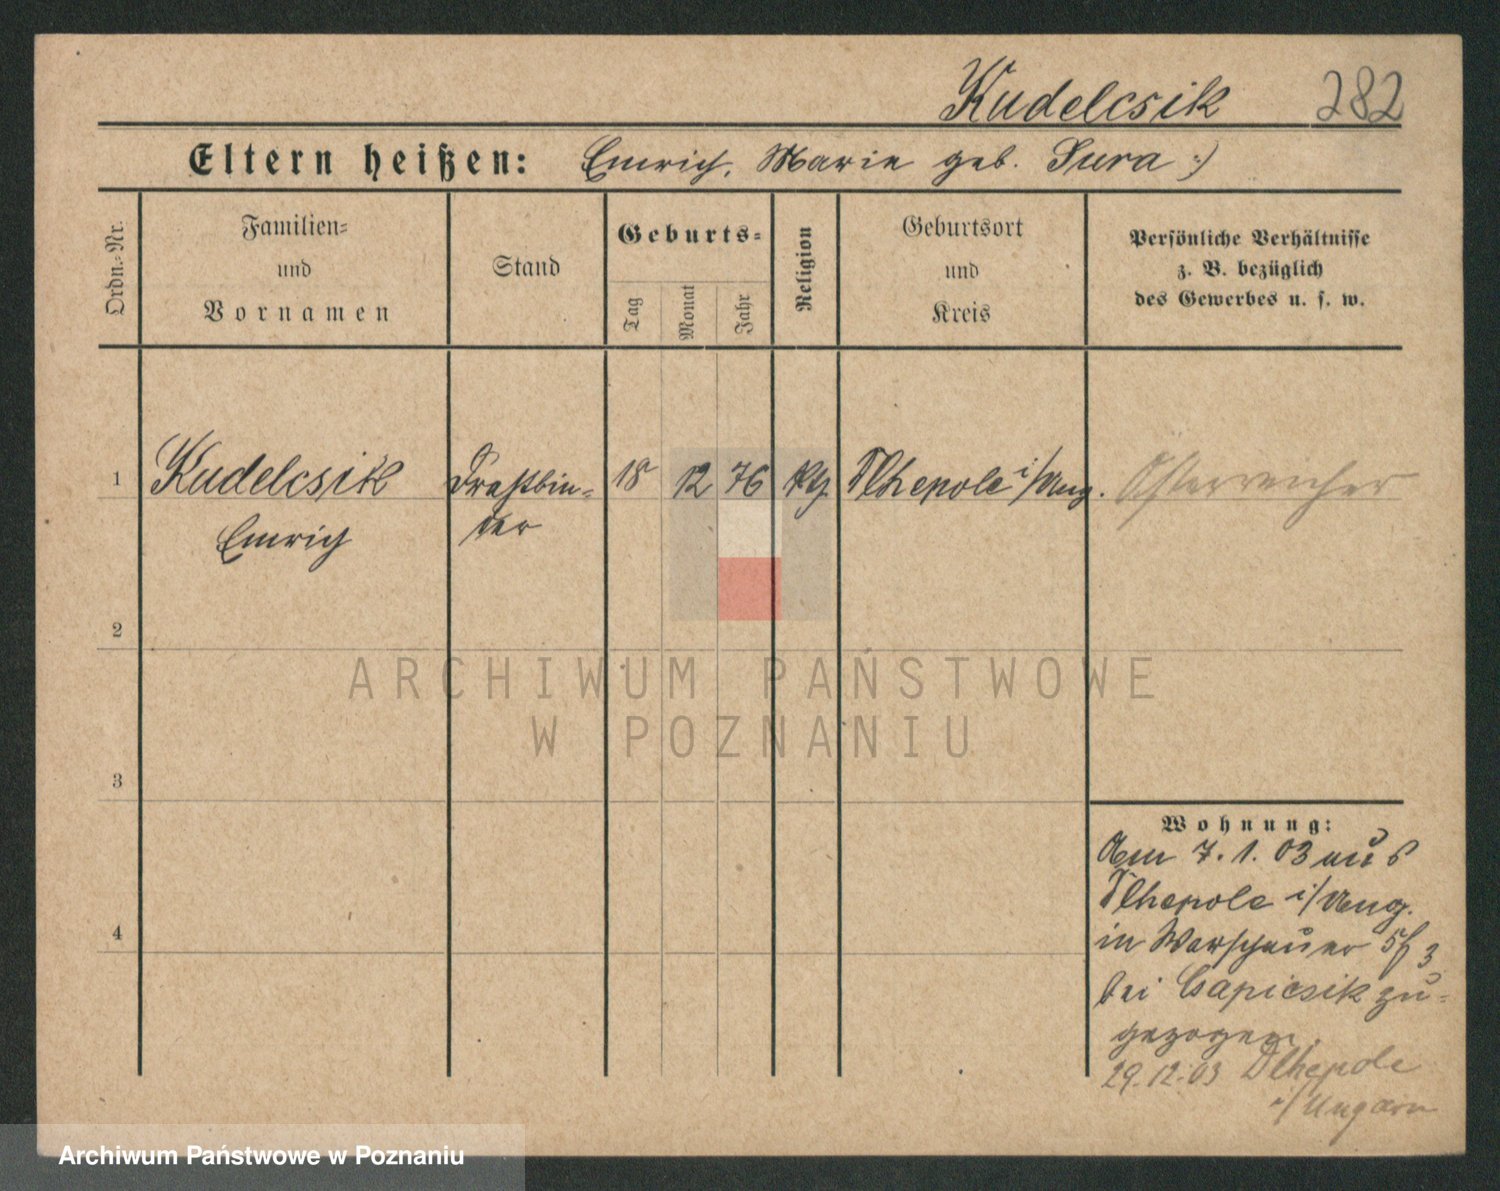 Kudelcsik 282
Eltern heißen: Emrich, Marie geb. Sura :)
Ordn.-Nr.
Familien-
und
Vornamen
Stand
Geburts-
Tag
Monat
Jahr
Religion
Geburtsort
und
Kreis
Persönliche Verhältnisse
z. B. bezüglich
des Gewerbes u. s. w.
1 Kudelcsik Drahtbin- 18 12 76 kth Dlhepole i/Ung. Österreicher
Emrich der
2
ARCHIWUM PAŃSTWOWE
W POZNANIU
3
Wohnung:
Am 7.1.03 aus
Dlhepole i/Ung.
4
in Warschauer 3
bei Csapicsik zu-
gezogen.
29.12.03 Dlhepole
i/Ungarn
Archiwum Państwowe w Poznaniu